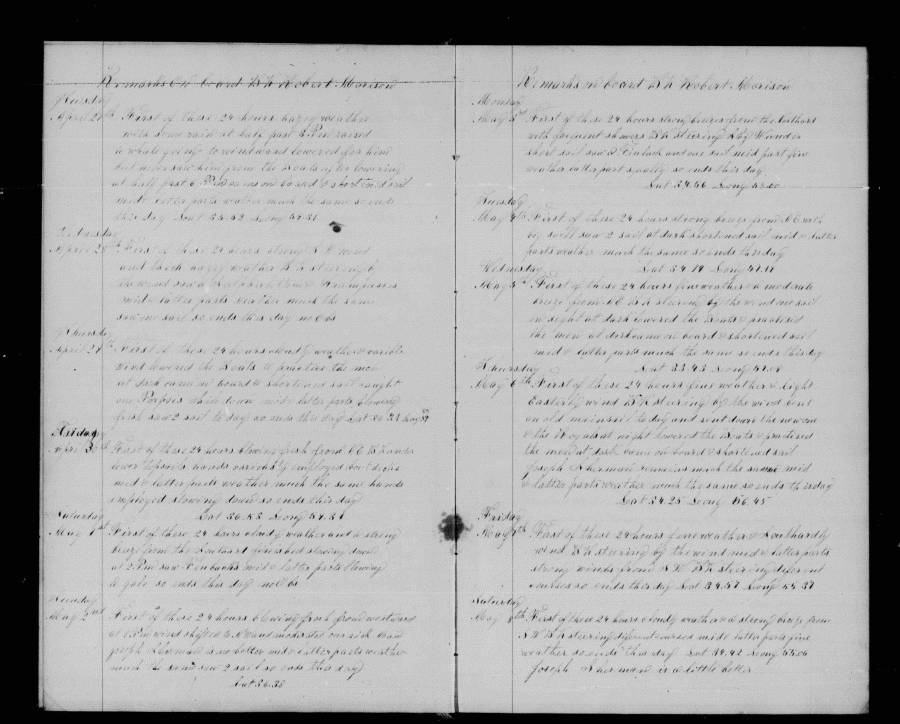 Remarks On board Bk Robert Morison
Tuesday
April 27th First of these 24 hours hazey weather
with some rain at half past 5 PM raised
a whale going to windward lowered for him
but never saw him from the Boats after lowering
at half past 6 PM came on board & shortened sail
mid & latter parts weather much the same so ends
this day Lat 35.52 Long 57.31
Wednesday
April 28th First of these 24 hours strong wind
and thick hazey weather Bk steering by
the wind saw
mid & latter parts weather much the same
saw one sail so ends this day no obs
Thursday
April 29th First of these 24 hours cloudy weather & varible
wind lowered the Boats to practice the men
at dark came on board & shortened sail caught
one Porpois while down mid & latter parts blowing
fresh saw 2 sail to day so ends this day Lat Long
Friday
April 30th First of these 24 hours blowing fresh from
lower topsails hands variously employed bout decks
mid & latter parts weather much the same hands
employed stowing down so ends this day
Saturday Lat 36.53 Long 57.31
May 1st First of these 24 hours cloudy weather and a strong
breeze from the Southard finished stowing down
at 2 PM saw Finbacks mid & latter parts blowing
a gale so ends this day no obs
Sunday
May 2nd First of these 24 hours blowing fresh from westward
at 1 PM wind shifted to and moderated our sick man
Joseph Sherman is no better mid & latter parts weather
much the same saw 2 sail so ends this day
Lat 36.38
Remarks on board Bk Robert Morison
Monday
May 3rd First of these 24 hours strong breezes from the Southard
with frequent showers Bk steering by Wind under
short sail saw Finback and one sail mid part fine
weather latter part squaly so ends this day
Lat 34.56 Long
Tuesday
May 4th First of these 24 hours strong breeze from with
big swell saw 2 sail at dark shortened sail mid & latter
parts weather much the same so ends this day
Wednesday Lat 34.19 Long 57.17
May 5th First of these 24 hours fine weather & a moderate
breeze from Bk steering by the wind one sail
in sight at dark lowered the Boats & practised
the men at dark came on board & shortened sail
mid & latter parts much the same so ends this day
Thursday Lat 33.43 Long 57.09
May 6th First of these 24 hours fine weather & light
Easterly wind Bk steering by the wind bent
an old mainsail to day and sent down the new one
& the Royals at night lowered the Boats & practised
the men at dark came on board & shortened sail
Joseph Sherman remains much the same mid
& latter parts weather much the same so ends this day
Lat 34.25 Long 56.45
Friday
May 7th First of these 24 hours fine weather & Southardly
wind Bk steering by the wind mid & latter parts
strong winds from Bk steering different
courses so ends this day Lat 34.57 Long 55.37
Saturday
May 8th First of these 24 hours cloudy weather & a strong breeze from
Bk steering different courses mid & latter parts fine
weather so ends this day Lat 34.42 Long 55.06
Joseph Sherman is a little better